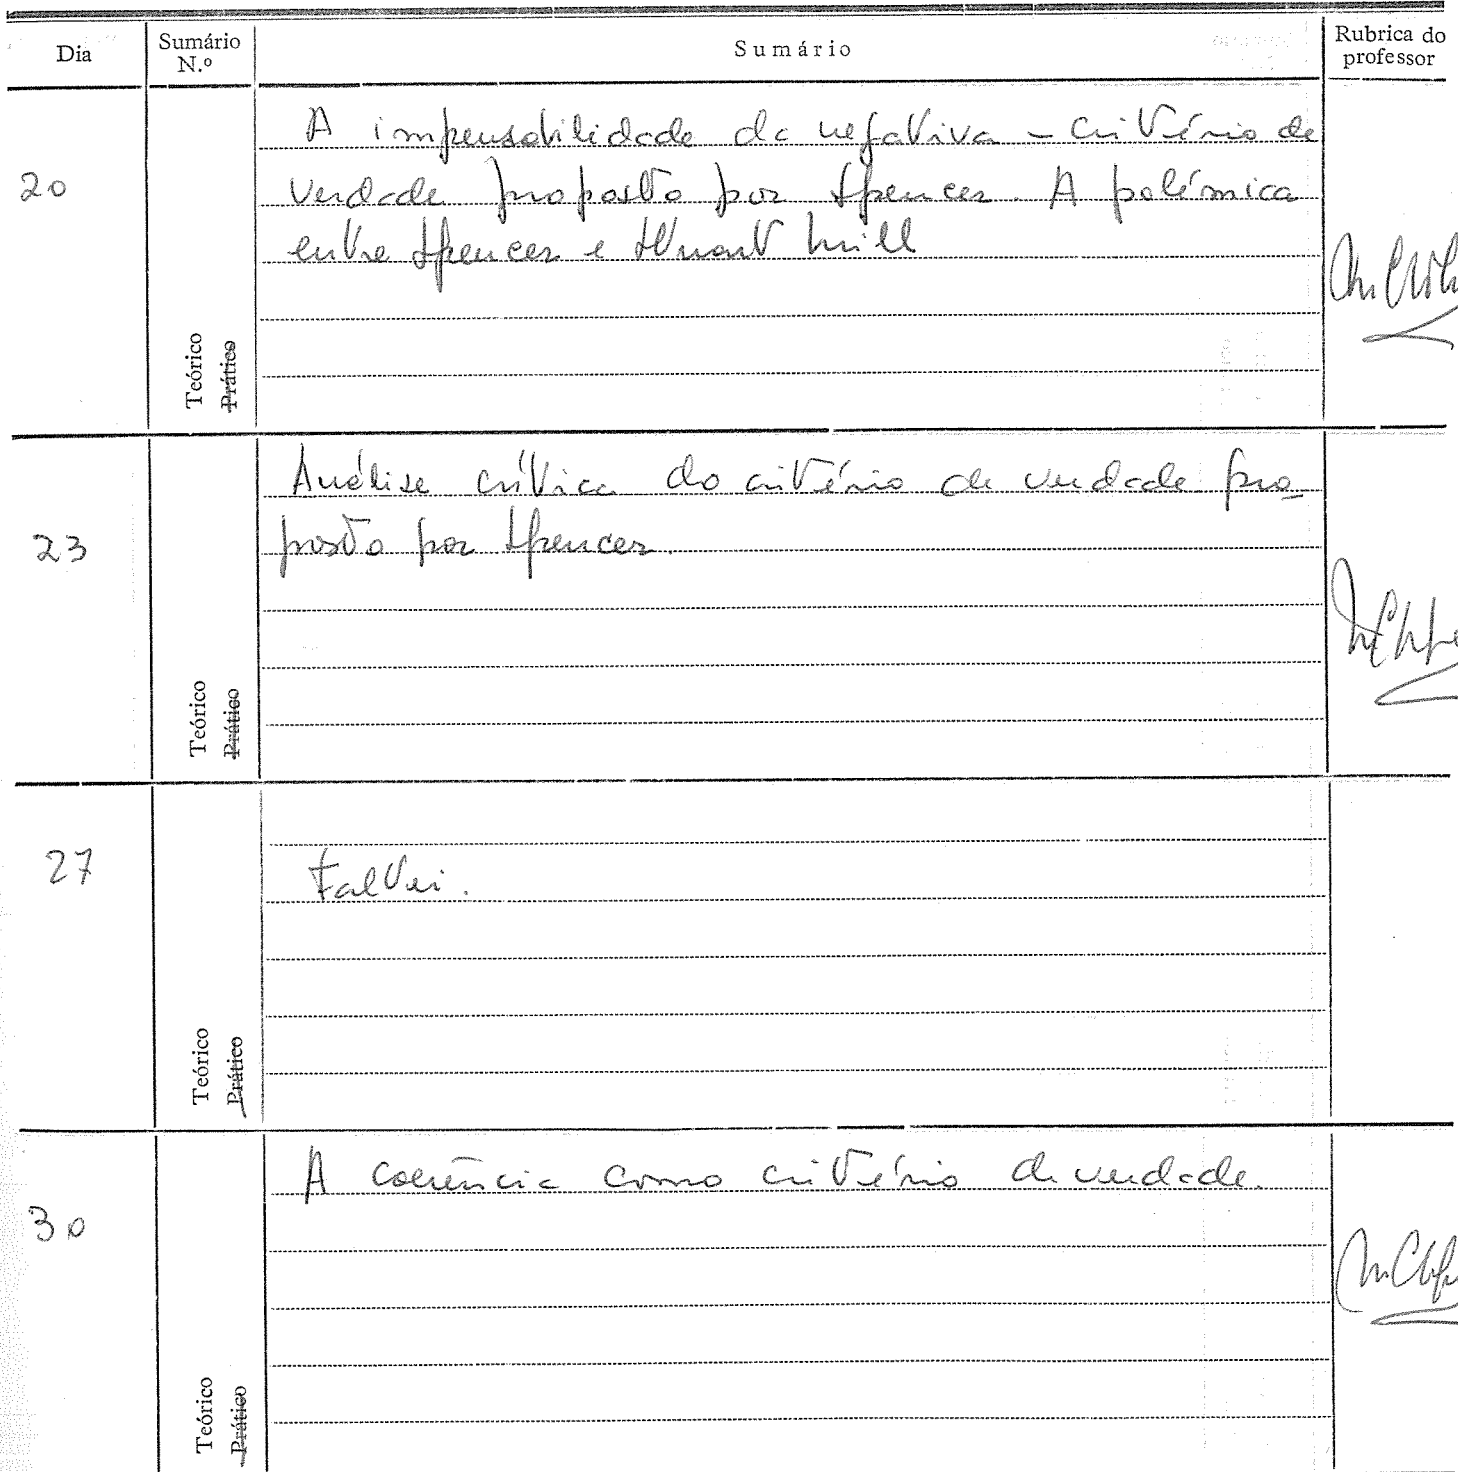 Dia
Sumário N.º
Sumário
Rubrica do professor
20
A impensabilidade da negativa – critério de
verdade proposto por Spencer. A polémica
entre Spencer e Stuart Mill
Teórico
Prático
23
Análise crítica do critério de verdade pro-
posto por Spencer.
Teórico
Prático
27
Faltei.
Teórico
Prático
30
A coerência como critério de verdade.
Teórico
Prático